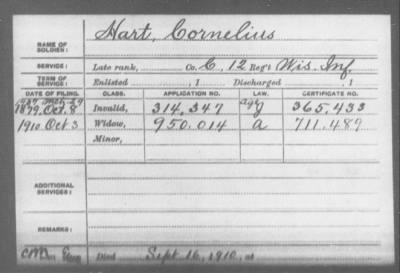 NAME OF SOLDIER: Hart, Cornelius
SERVICE: Late rank, Co. C, 12 Reg't Wis. Inf.
TERM OF SERVICE: Enlisted , 1 Discharged , 1
DATE OF FILING. CLASS. APPLICATION NO. LAW. CERTIFICATE NO.
1879 Oct. 8 Invalid, 314.347 365.433
1910 Oct 3 Widow, 950.014 a 711.489
Minor,
ADDITIONAL SERVICES:
REMARKS:
Died Sept 16, 1910, at